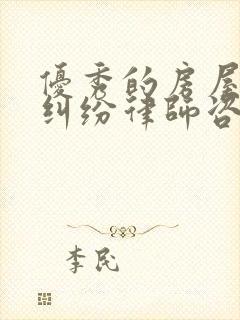 優秀的房屋
糾紛律師咨
李民